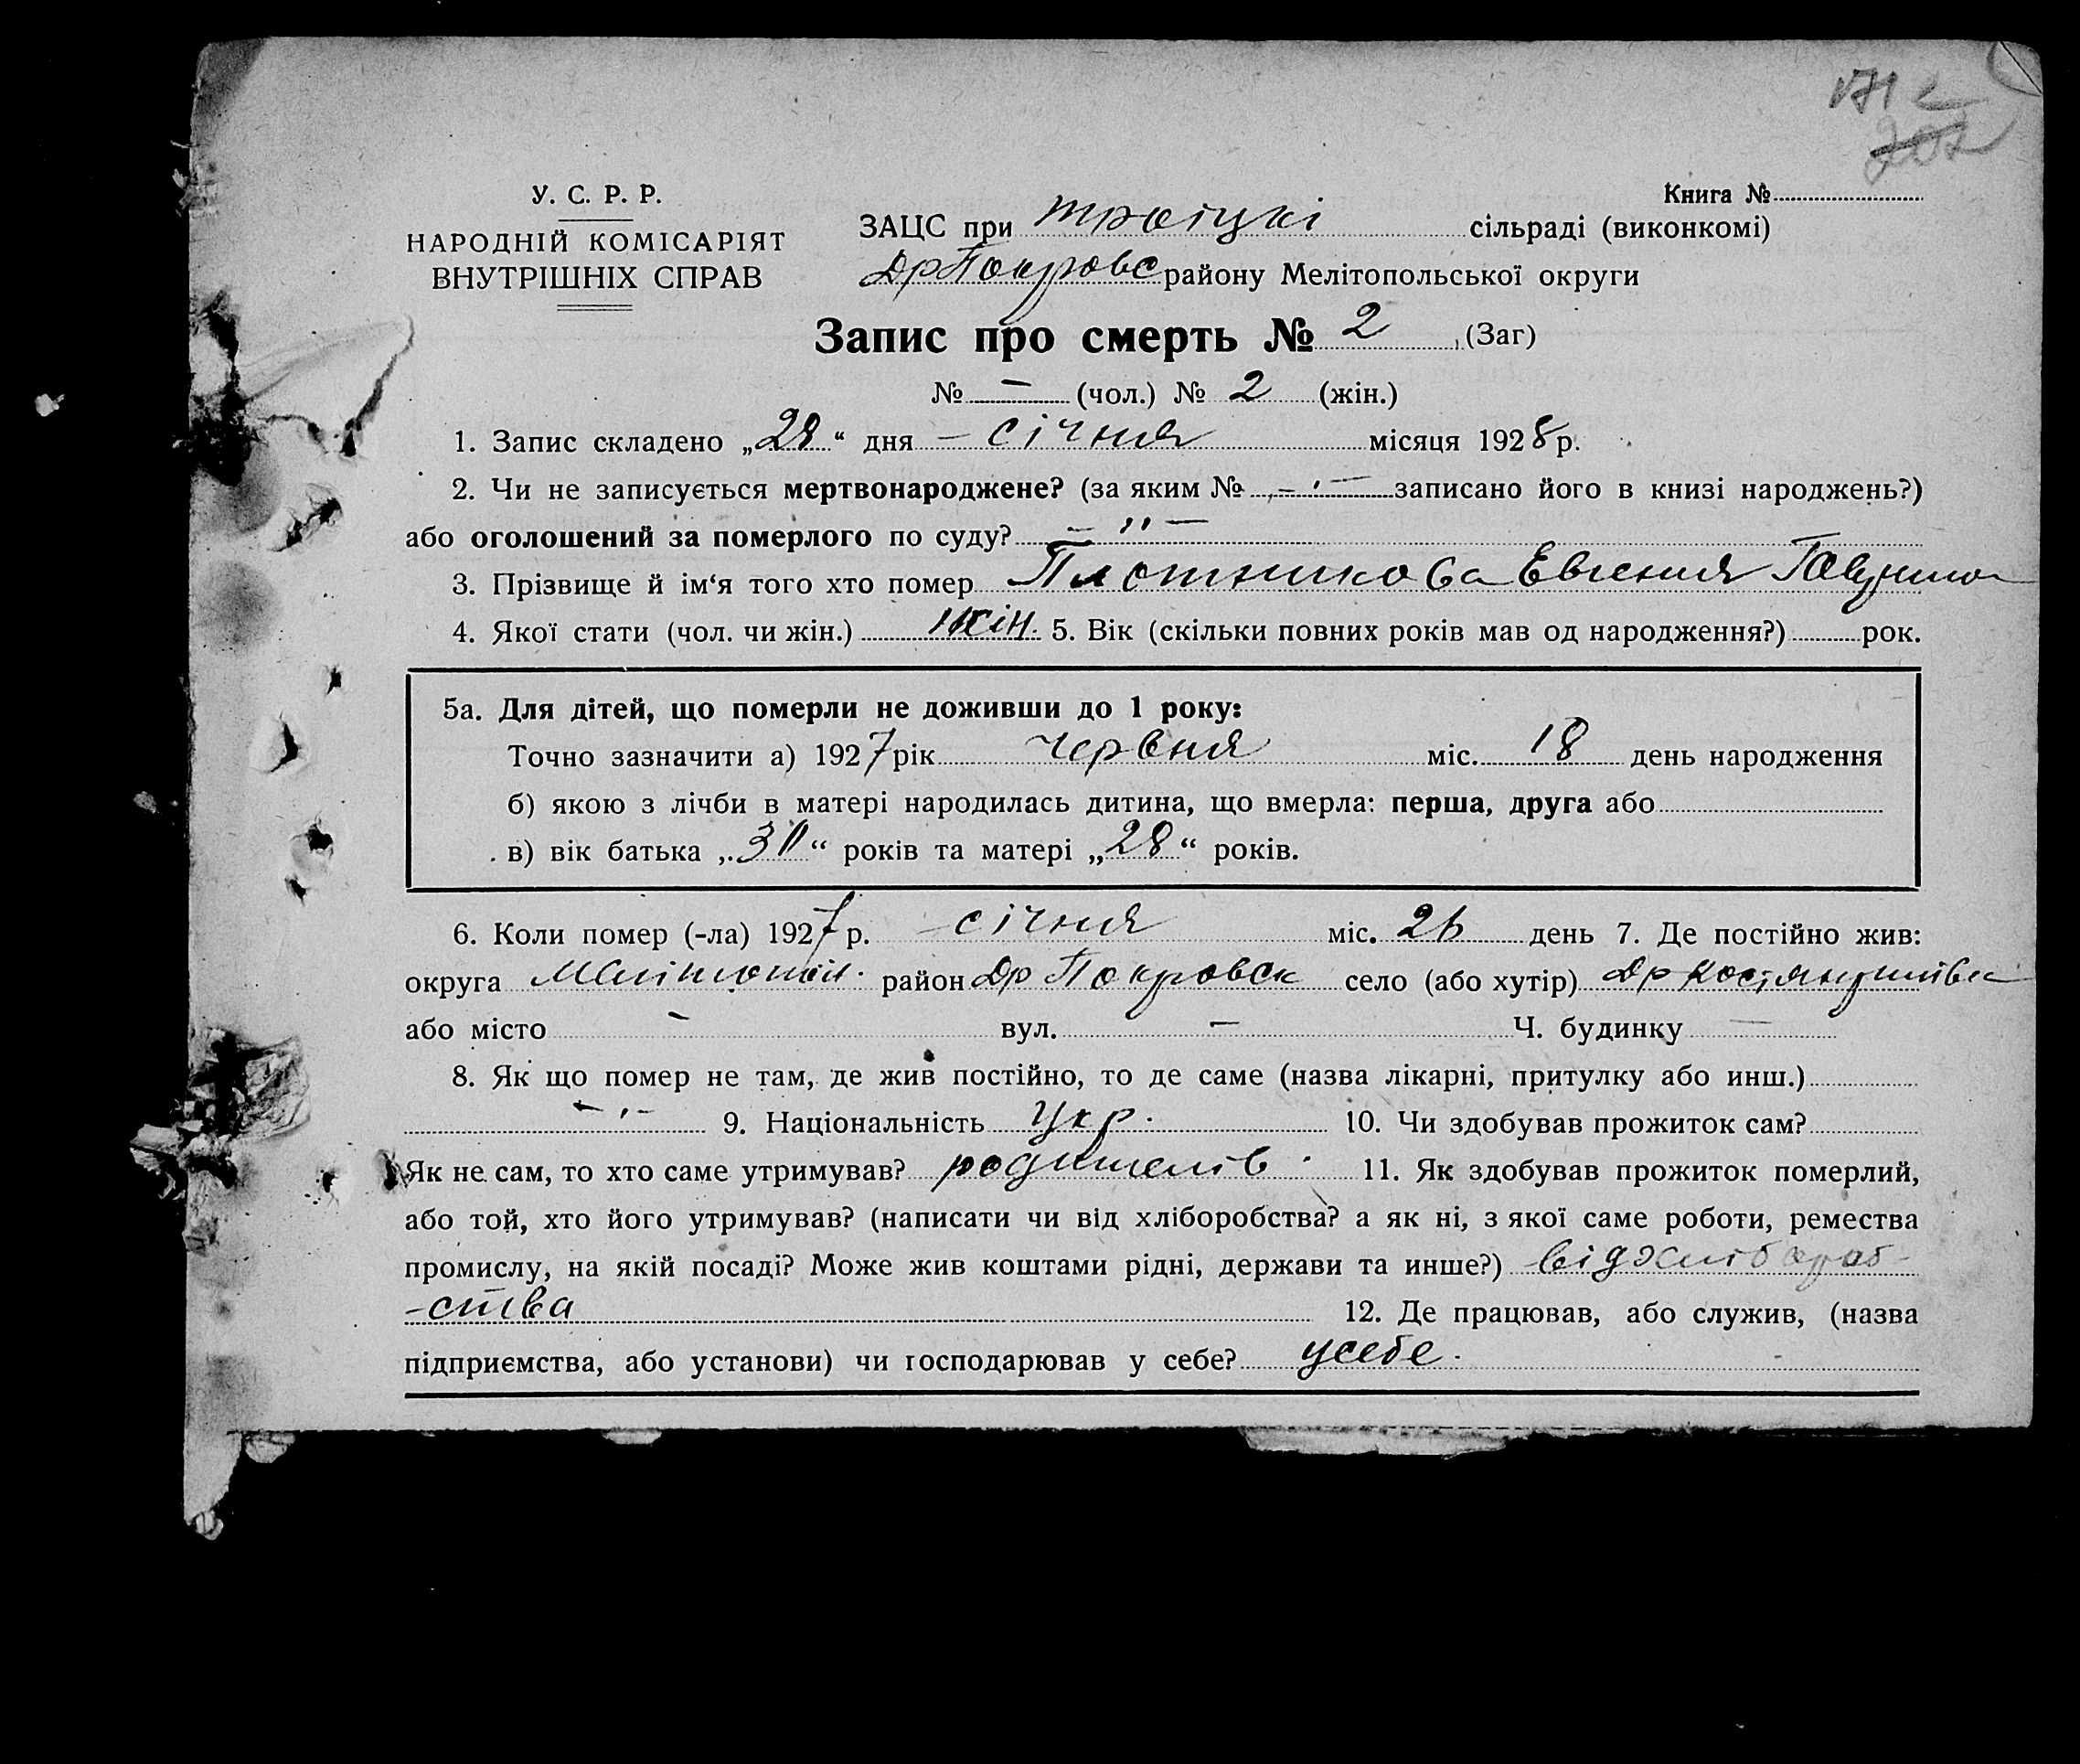 171
202
У. С. Р. Р.
НАРОДНІЙ КОМІСАРІЯТ
ВНУТРІШНІХ СПРАВ
Книга №
ЗАЦС при Троіцкі сільраді (виконкомі)
Др Покровс району Мелітопольської округи
Запис про смерть № 2 (Заг)
№ — (чол.) № 2 (жін.)
1. Запис складено „28“ дня – січня місяця 1928 р.
2. Чи не записується мертвонароджене? (за яким № – записано його в книзі народжень?)
або оголошений за померлого по суду? – „ –
3. Прізвище й ім‘я того хто помер Плотникова Евгения
4. Якої стати (чол. чи жін.) жін. 5. Вік (скільки повних років мав од народження?) рок.
5а. Для дітей, що померли не доживши до 1 року:
Точно зазначити а) 1927 рік червня міс. 18 день народження
б) якою з лічби в матері народилась дитина, що вмерла: перша, друга або
в) вік батька „ “ років та матері „28“ років.
6. Коли помер (-ла) 1927 р. січня міс. 26 день 7. Де постійно жив:
округа район Др Покровск село (або хутір) Др
або місто – вул. – Ч. будинку –
8. Як що помер не там, де жив постійно, то де саме (назва лікарні, притулку або инш.)
– „ – 9. Національність Укр. 10. Чи здобував прожиток сам?
Як не сам, то хто саме утримував? родителів 11. Як здобував прожиток померлий,
або той, хто його утримував? (написати чи від хліборобства? а як ні, з якої саме роботи, ремества
промислу, на якій посаді? Може жив коштами рідні, держави та инше?) від хлібороб-
-ства 12. Де працював, або служив, (назва
підприємства, або установи) чи господарював у себе? усебе.